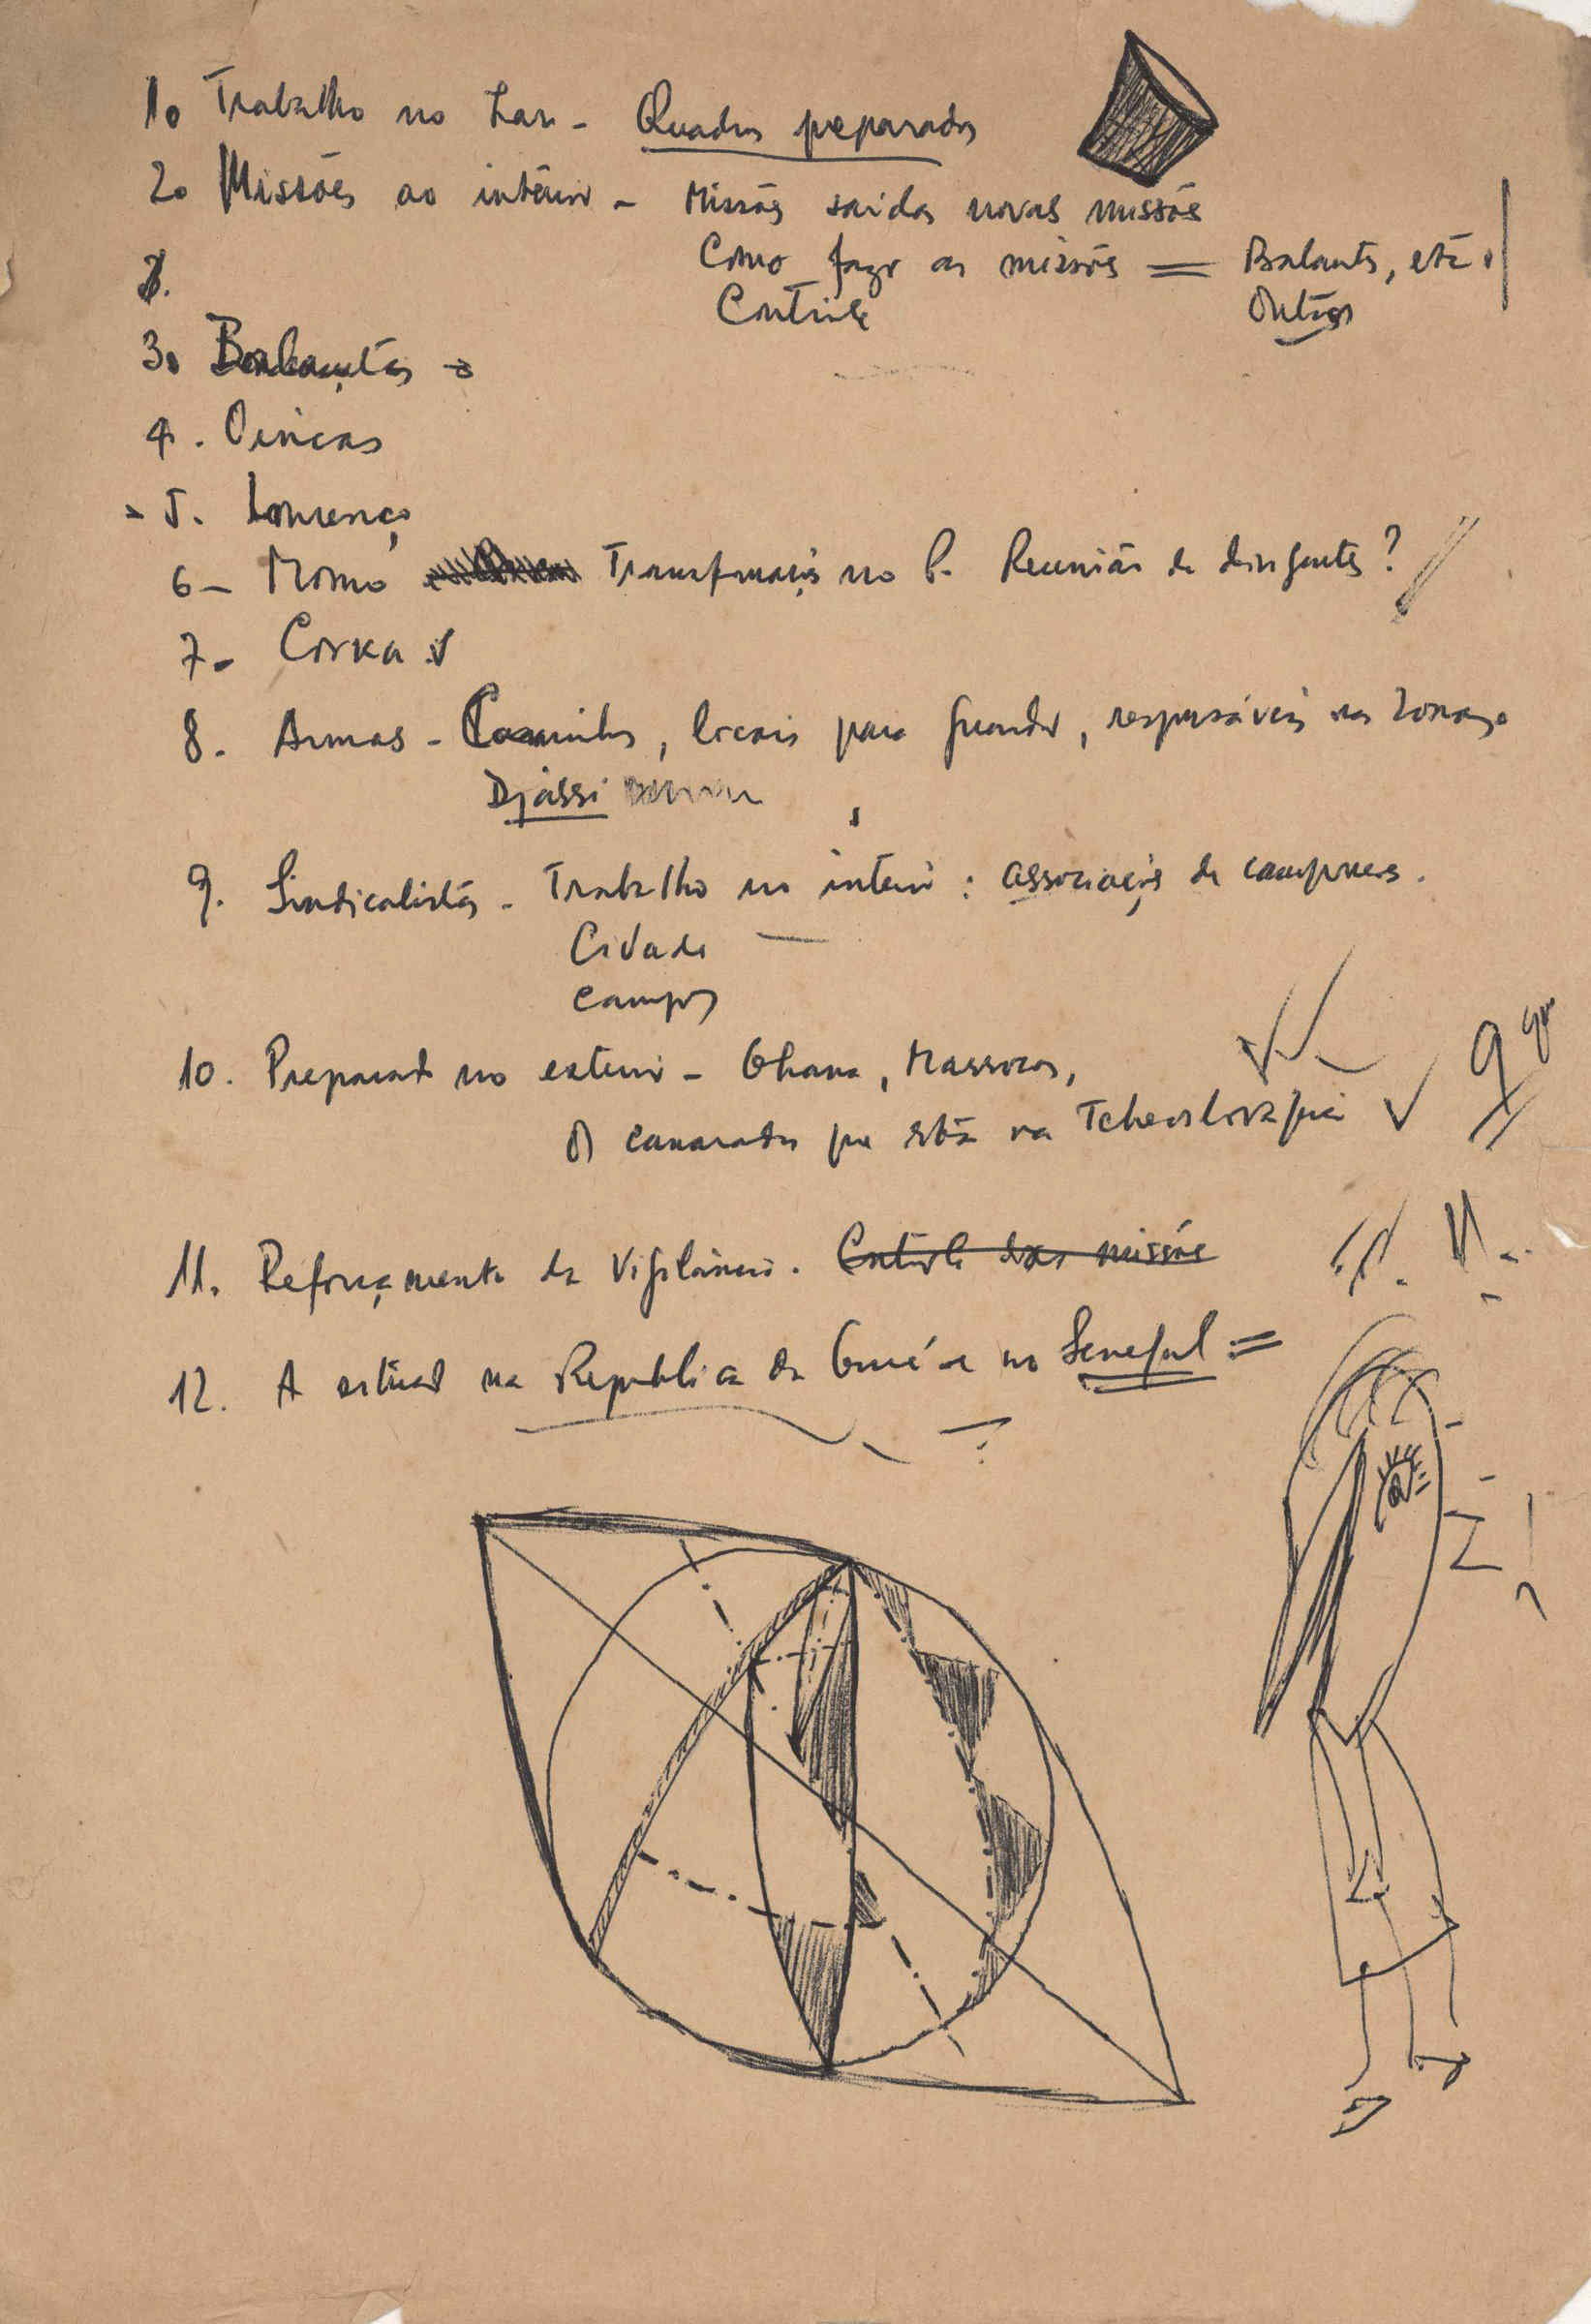 1. Trabalho no Lar - Quadros preparados
2. Missões ao interior - Missões saídas novas missões
Como fazer as missões = Balantas, etc.
Controle
3. Balantas
4. Oincas
5. Lourenço
6 - Momo Transformação no P. Reunião de dirigentes?
7 - Corka
8. Armas - Caminhos, locais para guardar, responsáveis nas zonas.
Djassi
9. Sindicalistas - Trabalho no interior: associações de camponeses.
Cidade —
Campos
10. Preparação no exterior - Ghana, Marrocos,
Os camaradas que estão na Tchecoslováquia
11. Reforçamento da Vigilância. Controle das missões
12. A situação na Republica da Guiné e no Senegal =
?